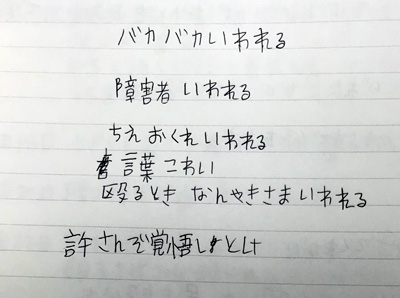 バカバカいわれる
障害者 いわれる
ちえおくれいわれる
言葉 こわい
殴るとき なんやきさまいわれる
許さんぞ覚悟しとけ